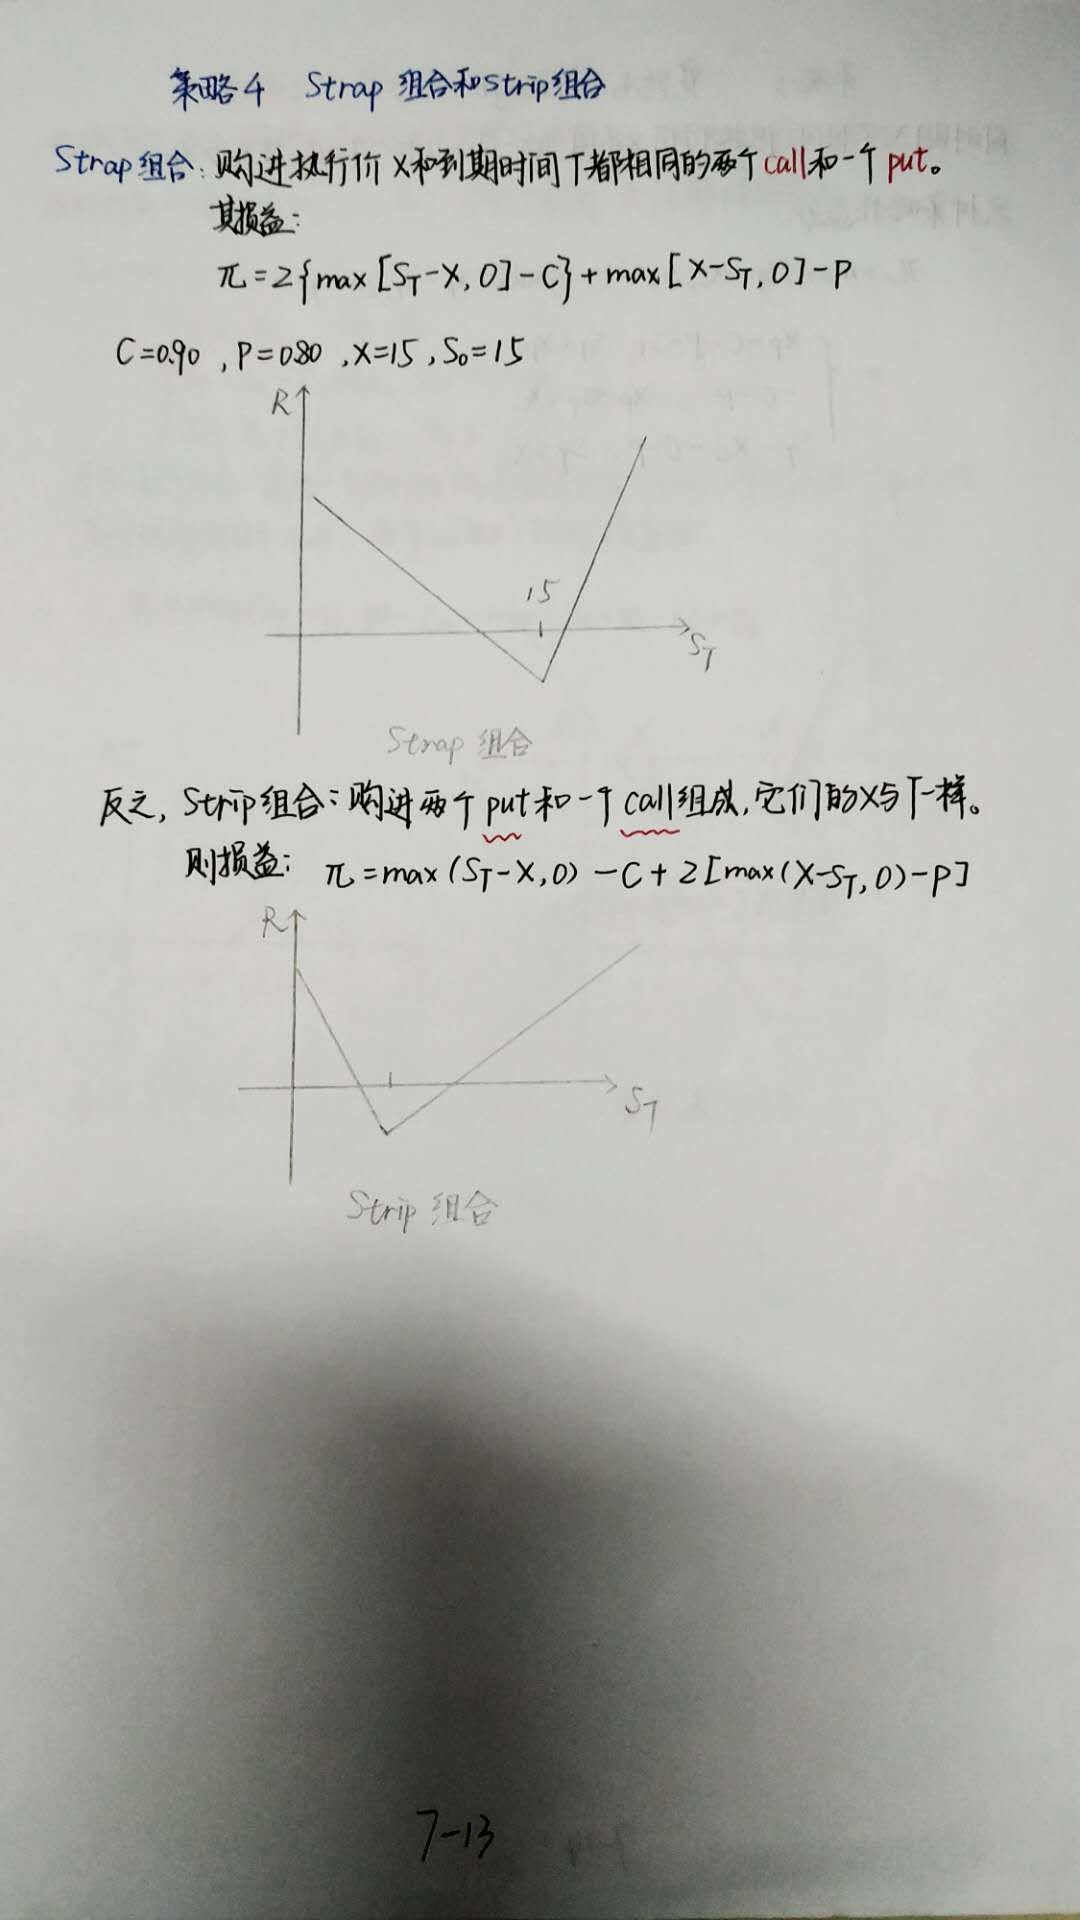 策略4 Strap组合和Strip组合
Strap组合:购进执行价X和到期时间T都相同的两个call和一个put。
其损益:
π=2{max[S_T-X,0]-C}+max[X-S_T,0]-P
C=0.90,P=0.80,X=15,S₀=15
R
15
S_T
Strap 组合
反之,Strip组合:购进两个put和一个call组成,它们的X与T一样。
则损益: π=max(S_T-X,0)-C+2[max(X-S_T,0)-P]
R
S_T
Strip 组合
7-13